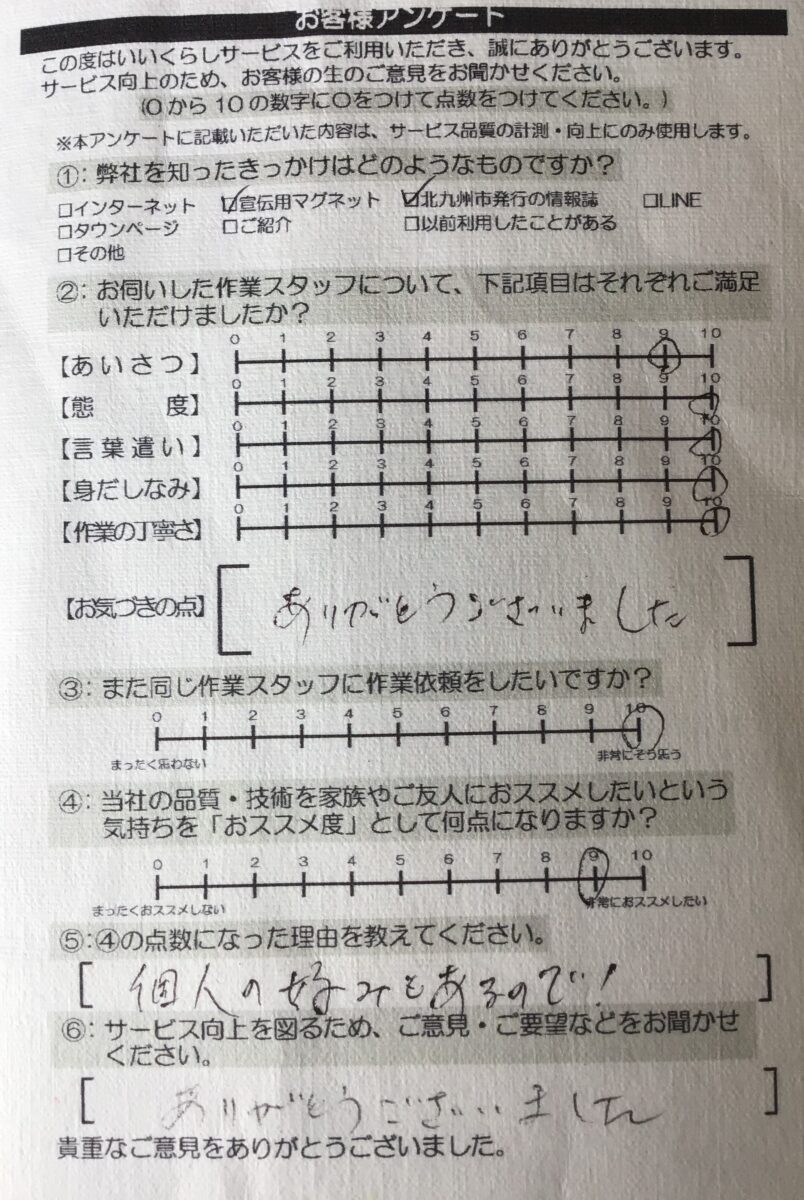 お客様アンケート
この度はいいくらしサービスをご利用いただき、誠にありがとうございます。
サービス向上のため、お客様の生のご意見をお聞かせください。
(0から10の数字に○をつけて点数をつけてください。)
※本アンケートに記載いただいた内容は、サービス品質の計測・向上にのみ使用します。
①:弊社を知ったきっかけはどのようなものですか?
□インターネット ☑宣伝用マグネット ☑北九州市発行の情報誌 □LINE
□タウンページ □ご紹介 □以前利用したことがある
□その他
②:お伺いした作業スタッフについて、下記項目はそれぞれご満足
いただけましたか?
0 1 2 3 4 5 6 7 8 9 10
【あいさつ】
0 1 2 3 4 5 6 7 8 9 10
【態度】
0 1 2 3 4 5 6 7 8 9 10
【言葉遣い】
0 1 2 3 4 5 6 7 8 9 10
【身だしなみ】
0 1 2 3 4 5 6 7 8 9 10
【作業の丁寧さ】
【お気づきの点】[ありがとうございました]
③:また同じ作業スタッフに作業依頼をしたいですか?
0 1 2 3 4 5 6 7 8 9 10
まったく思わない 非常にそう思う
④:当社の品質・技術を家族やご友人におススメしたいという
気持ちを「おススメ度」として何点になりますか?
0 1 2 3 4 5 6 7 8 9 10
まったくおススメしない 非常におススメしたい
⑤:④の点数になった理由を教えてください。
[個人の好みもあるので!]
⑥:サービス向上を図るため、ご意見・ご要望などをお聞かせ
ください。
[ありがとうございました]
貴重なご意見をありがとうございました。